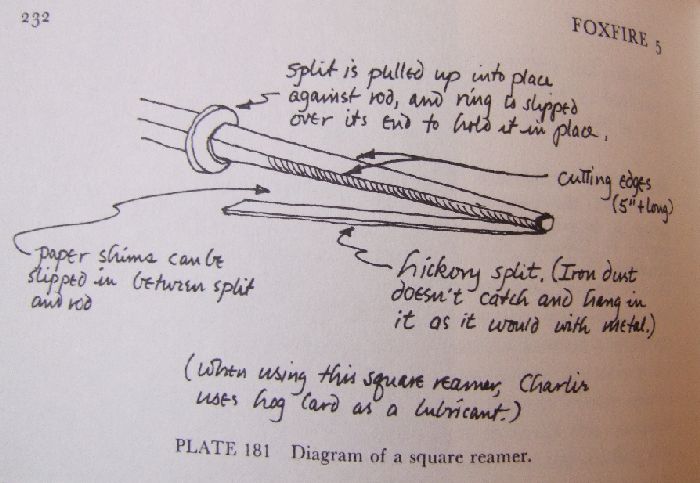 232
FOXFIRE 5
split is pulled up into place
against rod, and ring is slipped
over its end to hold it in place.
cutting edges
(5"+ long)
paper shims can be
slipped in between split
and rod
hickory split. (Iron dust
doesn't catch and hang in
it as it would with metal.)
(When using this square reamer, Charlie
uses hog lard as a lubricant.)
PLATE 181 Diagram of a square reamer.